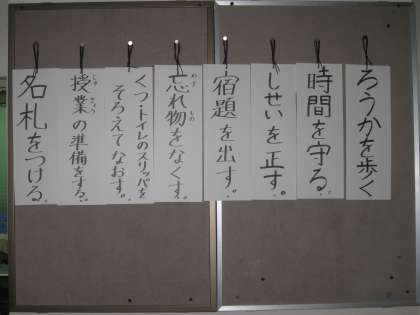 ろうかを歩く
時間を守る。
しせいを正す。
宿題を出す。
忘れ物をなくす。
くつ・トイレのスリッパを
そろえてなおす。
授業の準備をする。
名札をつける。